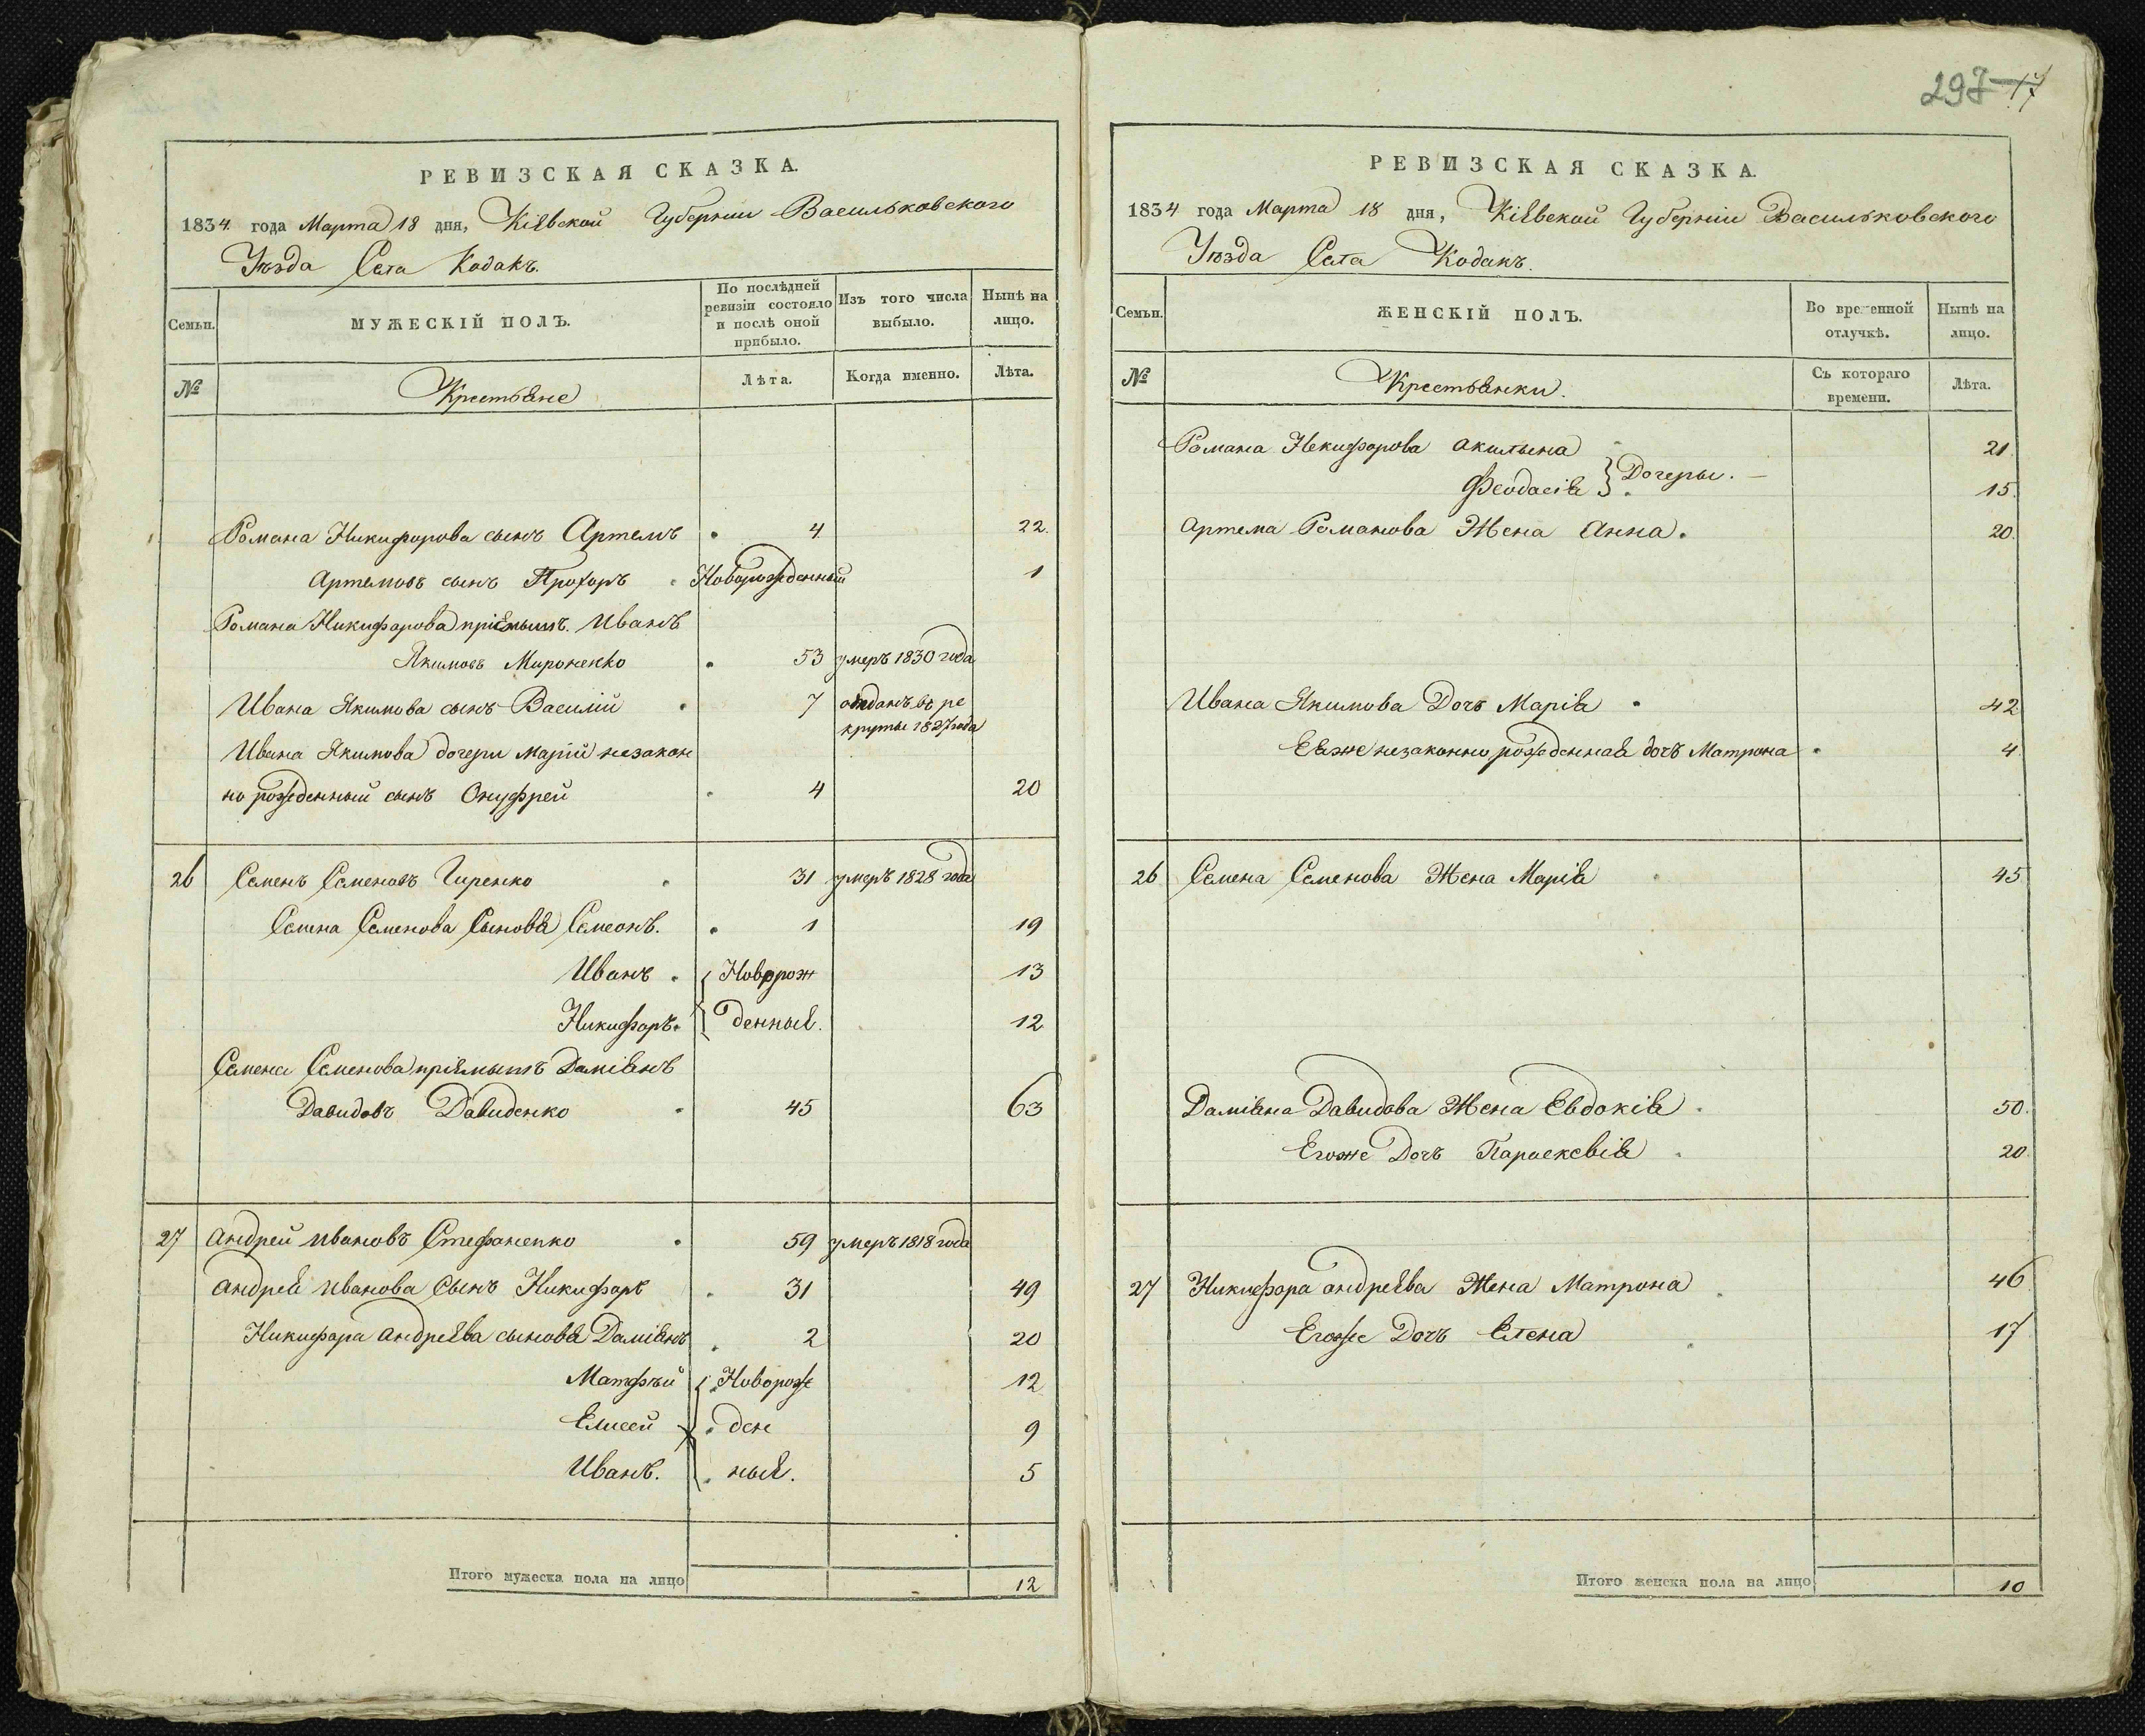 297 17
РЕВИЗСКАЯ СКАЗКА.
1834 года Марта 18 дня, Кіевской Губерніи Васильковскаго
Уѣзда Села Кодакъ.
Семьи.
МУЖЕСКІЙ ПОЛЪ.
По послѣдней ревизіи состояло и послѣ оной прибыло.
Изъ того числа выбыло.
Нынѣ на лицо.
№
Крестьяне
Лѣта.
Когда именно.
Лѣта.
Романа Никифорова сынъ Артемъ 4 22.
Артемовъ сынъ Прохоръ Новорожденный 1
Романа Никифорова пріемышъ Иванъ
Якимовъ Мироненко 53 умеръ 1830 года
Ивана Якимова сынъ Василій 7 отданъ въ ре
круты 1827 года
Ивана Якимова дочери Маріи незакон
но рожденный сынъ Онуфрей 4 20
26 Семенъ Семеновъ Гиренко 31 умеръ 1828 года
Семена Семенова Сыновья Симеонъ. 1 19
Иванъ Новорож 13
Никифоръ денные. 12
Семена Семенова пріемышъ Даміянъ
Давидовъ Давиденко 45 63
27 Андрей Ивановъ Стефаненко 59 умеръ 1818 года
Андрея Иванова Сынъ Никифоръ 31 49
Никифора Андреева сыновья Даміянъ 2 20
Матфѣй Новорож 12
Елисей ден 9
Иванъ. ные. 5
Итого мужеска пола на лицо 12
РЕВИЗСКАЯ СКАЗКА.
1834 года Марта 18 дня, Кіевской Губерніи Васильковского
Уѣзда Села Кодакъ.
Семьи.
ЖЕНСКІЙ ПОЛЪ.
Во временной отлучкѣ.
Нынѣ на лицо.
№
Крестьянки.
Съ котораго времени.
Лѣта.
Романа Никифорова Акилына 21.
Феодасія } Дочеры. 15.
Артема Романова Жена Анна. 20.
Ивана Якимова Дочъ Марія 42
Еяже незаконно рожденная дочъ Матрона 4.
26 Семена Семенова Жена Марія 45
Даміяна Давидова Жена Евдокія 50.
Егоже Дочъ Параскевія 20.
27 Никифора Андреева Жена Матрона 46
Егоже Дочъ Елена 17
Итого женска пола на лицо 10